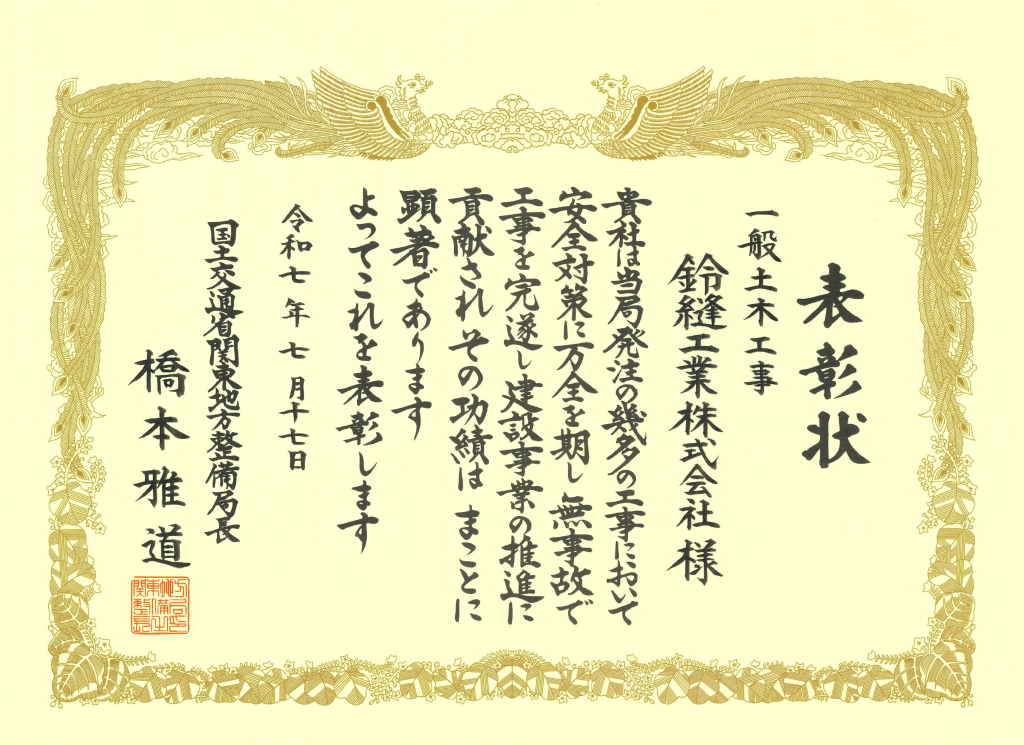 表彰状
一般土木工事
鈴縫工業株式会社 様
貴社は当局発注の幾多の工事において
安全対策に万全を期し 無事故で
工事を完遂し 建設事業の推進に
貢献され その功績は まことに
顕著であります
よってこれを表彰します
令和七年七月十七日
国土交通省関東地方整備局長
橋本雅道